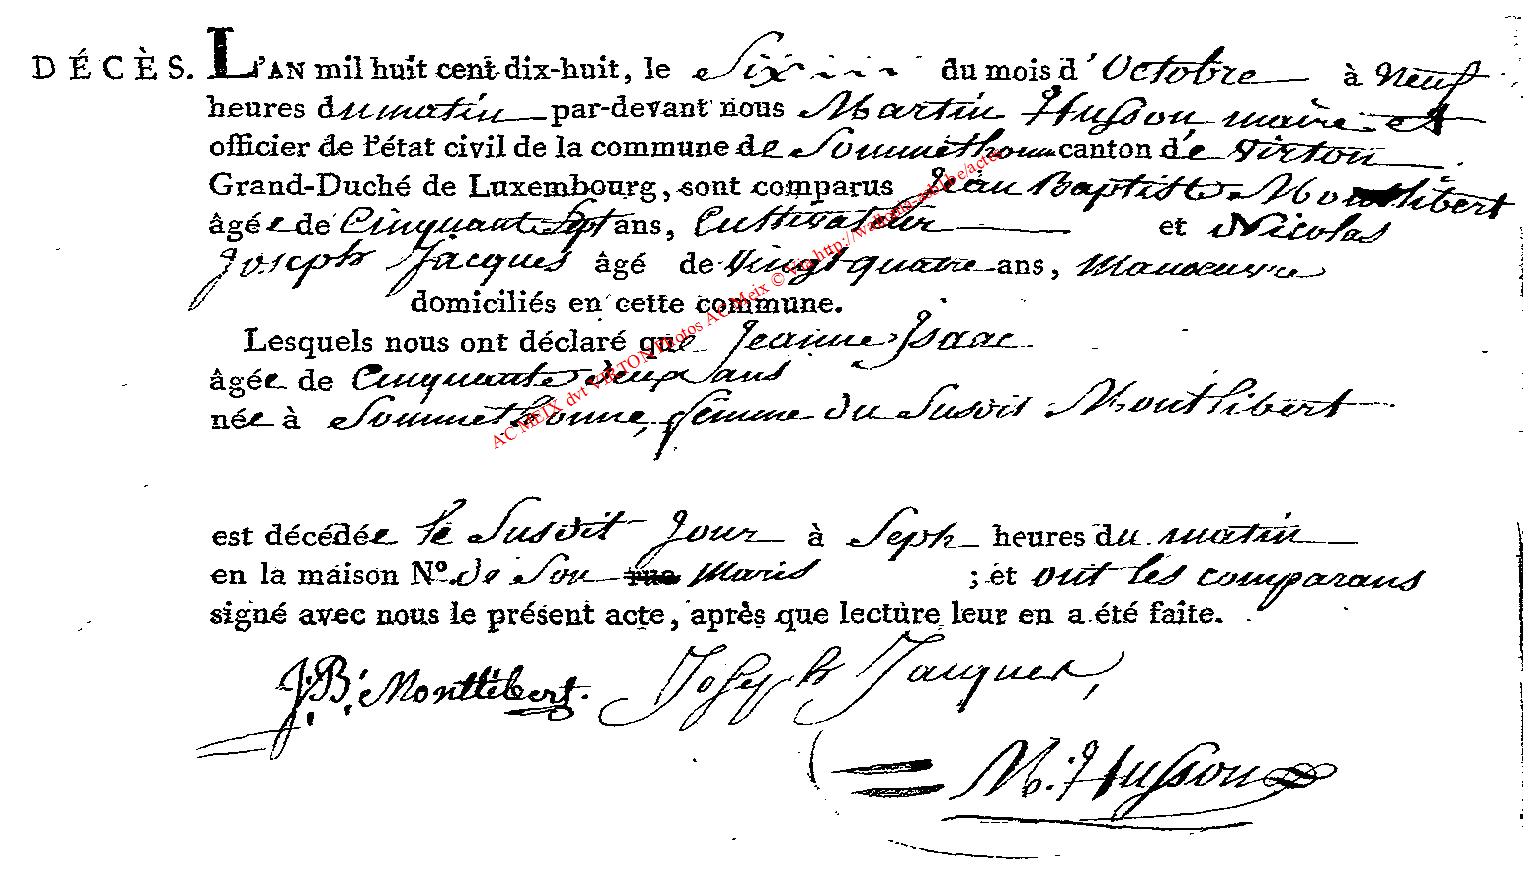 DÉCÈS. L'AN mil huit cent dix-huit, le Six du mois d'Octobre à Neuf
heures du matin par-devant nous Martin Husson maire et
officier de l'état civil de la commune de Sommethonne canton de Virton
Grand-Duché de Luxembourg, sont comparus Jean Baptiste Montlibert
âgée de Cinquante Sept ans, Cultivateur et Nicolas
Joseph Jacques âgé de Vingt quatre ans, Manoeuvre
domiciliés en cette commune.
Lesquels nous ont déclaré que Jeanne Isaac
âgée de Cinquante deux ans
née à Sommethonne, femme du Susdit Montlibert
est décédée le Susdit Jour à Sept heures du matin
en la maison N.º de Son rue Maris ; et ont les comparans
signé avec nous le présent acte, après que lecture leur en a été faite.
J: B: Montlibert. Joseph Jacques,
M. Husson
AC MEIX dvt VIRTON Photos AC Meix © Via http://